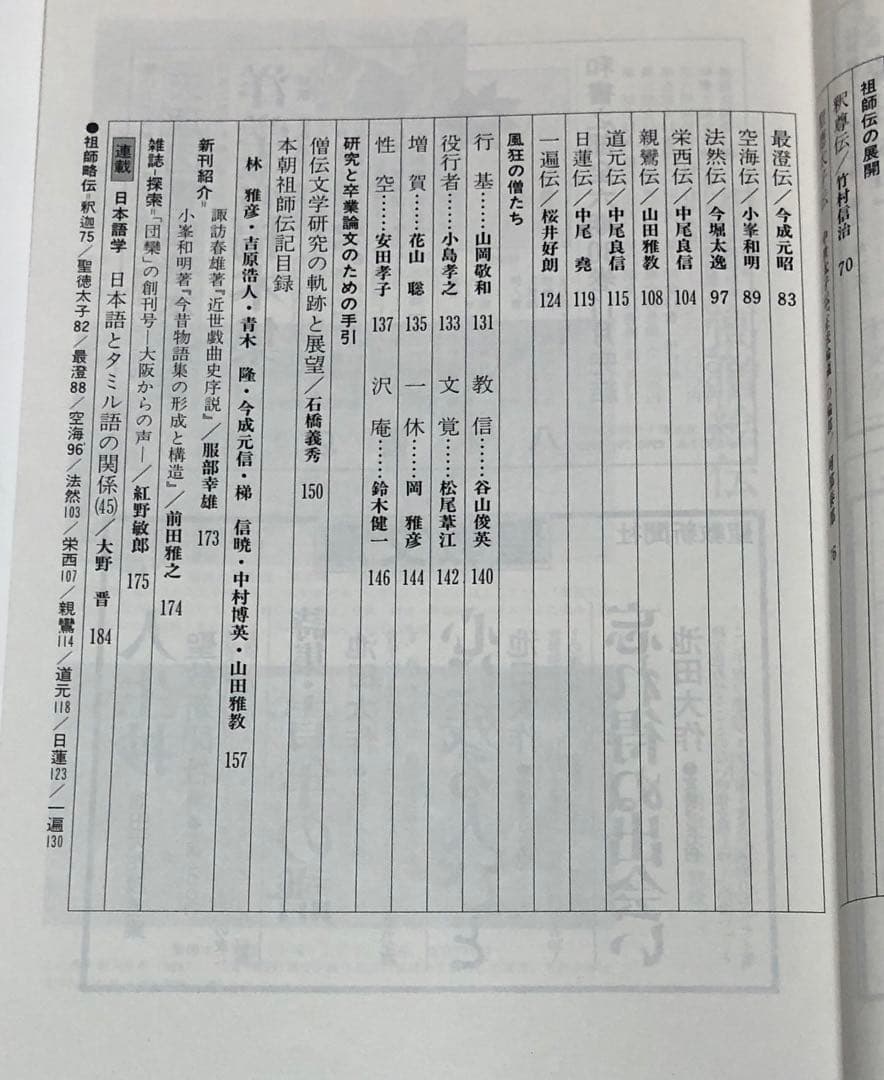 祖師伝の展開
釈尊伝／竹村信治 70
最澄伝／今成元昭 83
空海伝／小峯和明 89
法然伝／今堀太逸 97
栄西伝／中尾良信 104
親鸞伝／山田雅教 108
道元伝／中尾良信 115
日蓮伝／中尾 堯 119
一遍伝／桜井好朗 124
風狂の僧たち
行 基……山岡敬和 131 教 信……谷山俊英 140
役行者……小島孝之 133 文 覚……松尾葦江 142
増 賀……花山 聡 135 一 休……岡 雅彦 144
性 空……安田孝子 137 沢 庵……鈴木健一 146
研究と卒業論文のための手引
僧伝文学研究の軌跡と展望／石橋義秀 150
本朝祖師伝記目録
林 雅彦・吉原浩人・青木 隆・今成元信・梯 信暁・中村博英・山田雅教 157
新刊紹介＝諏訪春雄著『近世戯曲史序説』／服部幸雄 173
小峯和明著『今昔物語集の形成と構造』／前田雅之 174
雑誌＝探索＝「団欒」の創刊号―大阪からの声―／紅野敏郎 175
連載 日本語学 日本語とタミル語の関係(45)／大野 晋 184
●祖師略伝＝釈迦75／聖徳太子82／最澄88／空海96／法然103／栄西107／親鸞114／道元118／日蓮123／一遍130